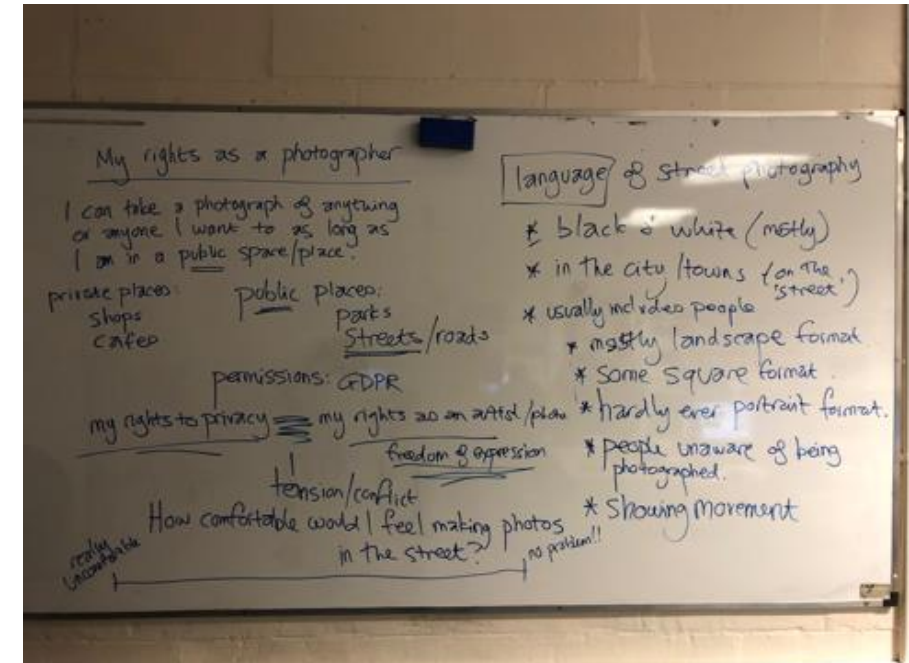 My rights as a photographer
I can take a photograph of anything
or anyone I want to as long as
I am in a public space/place.
private places:
shops
cafes
public places:
parks
streets/roads
permissions: GDPR
my rights to privacy
my rights as an artist/
freedom of expression
tension/conflict
How comfortable would I feel making photos
in the street?
really
uncomfortable
no problem!!
language of street photography
* black & white (mostly)
* in the city/towns (on the
'street'.)
* usually includes people
* mostly landscape format.
* some square format.
* hardly ever portrait format.
* people unaware of being
photographed.
* showing movement